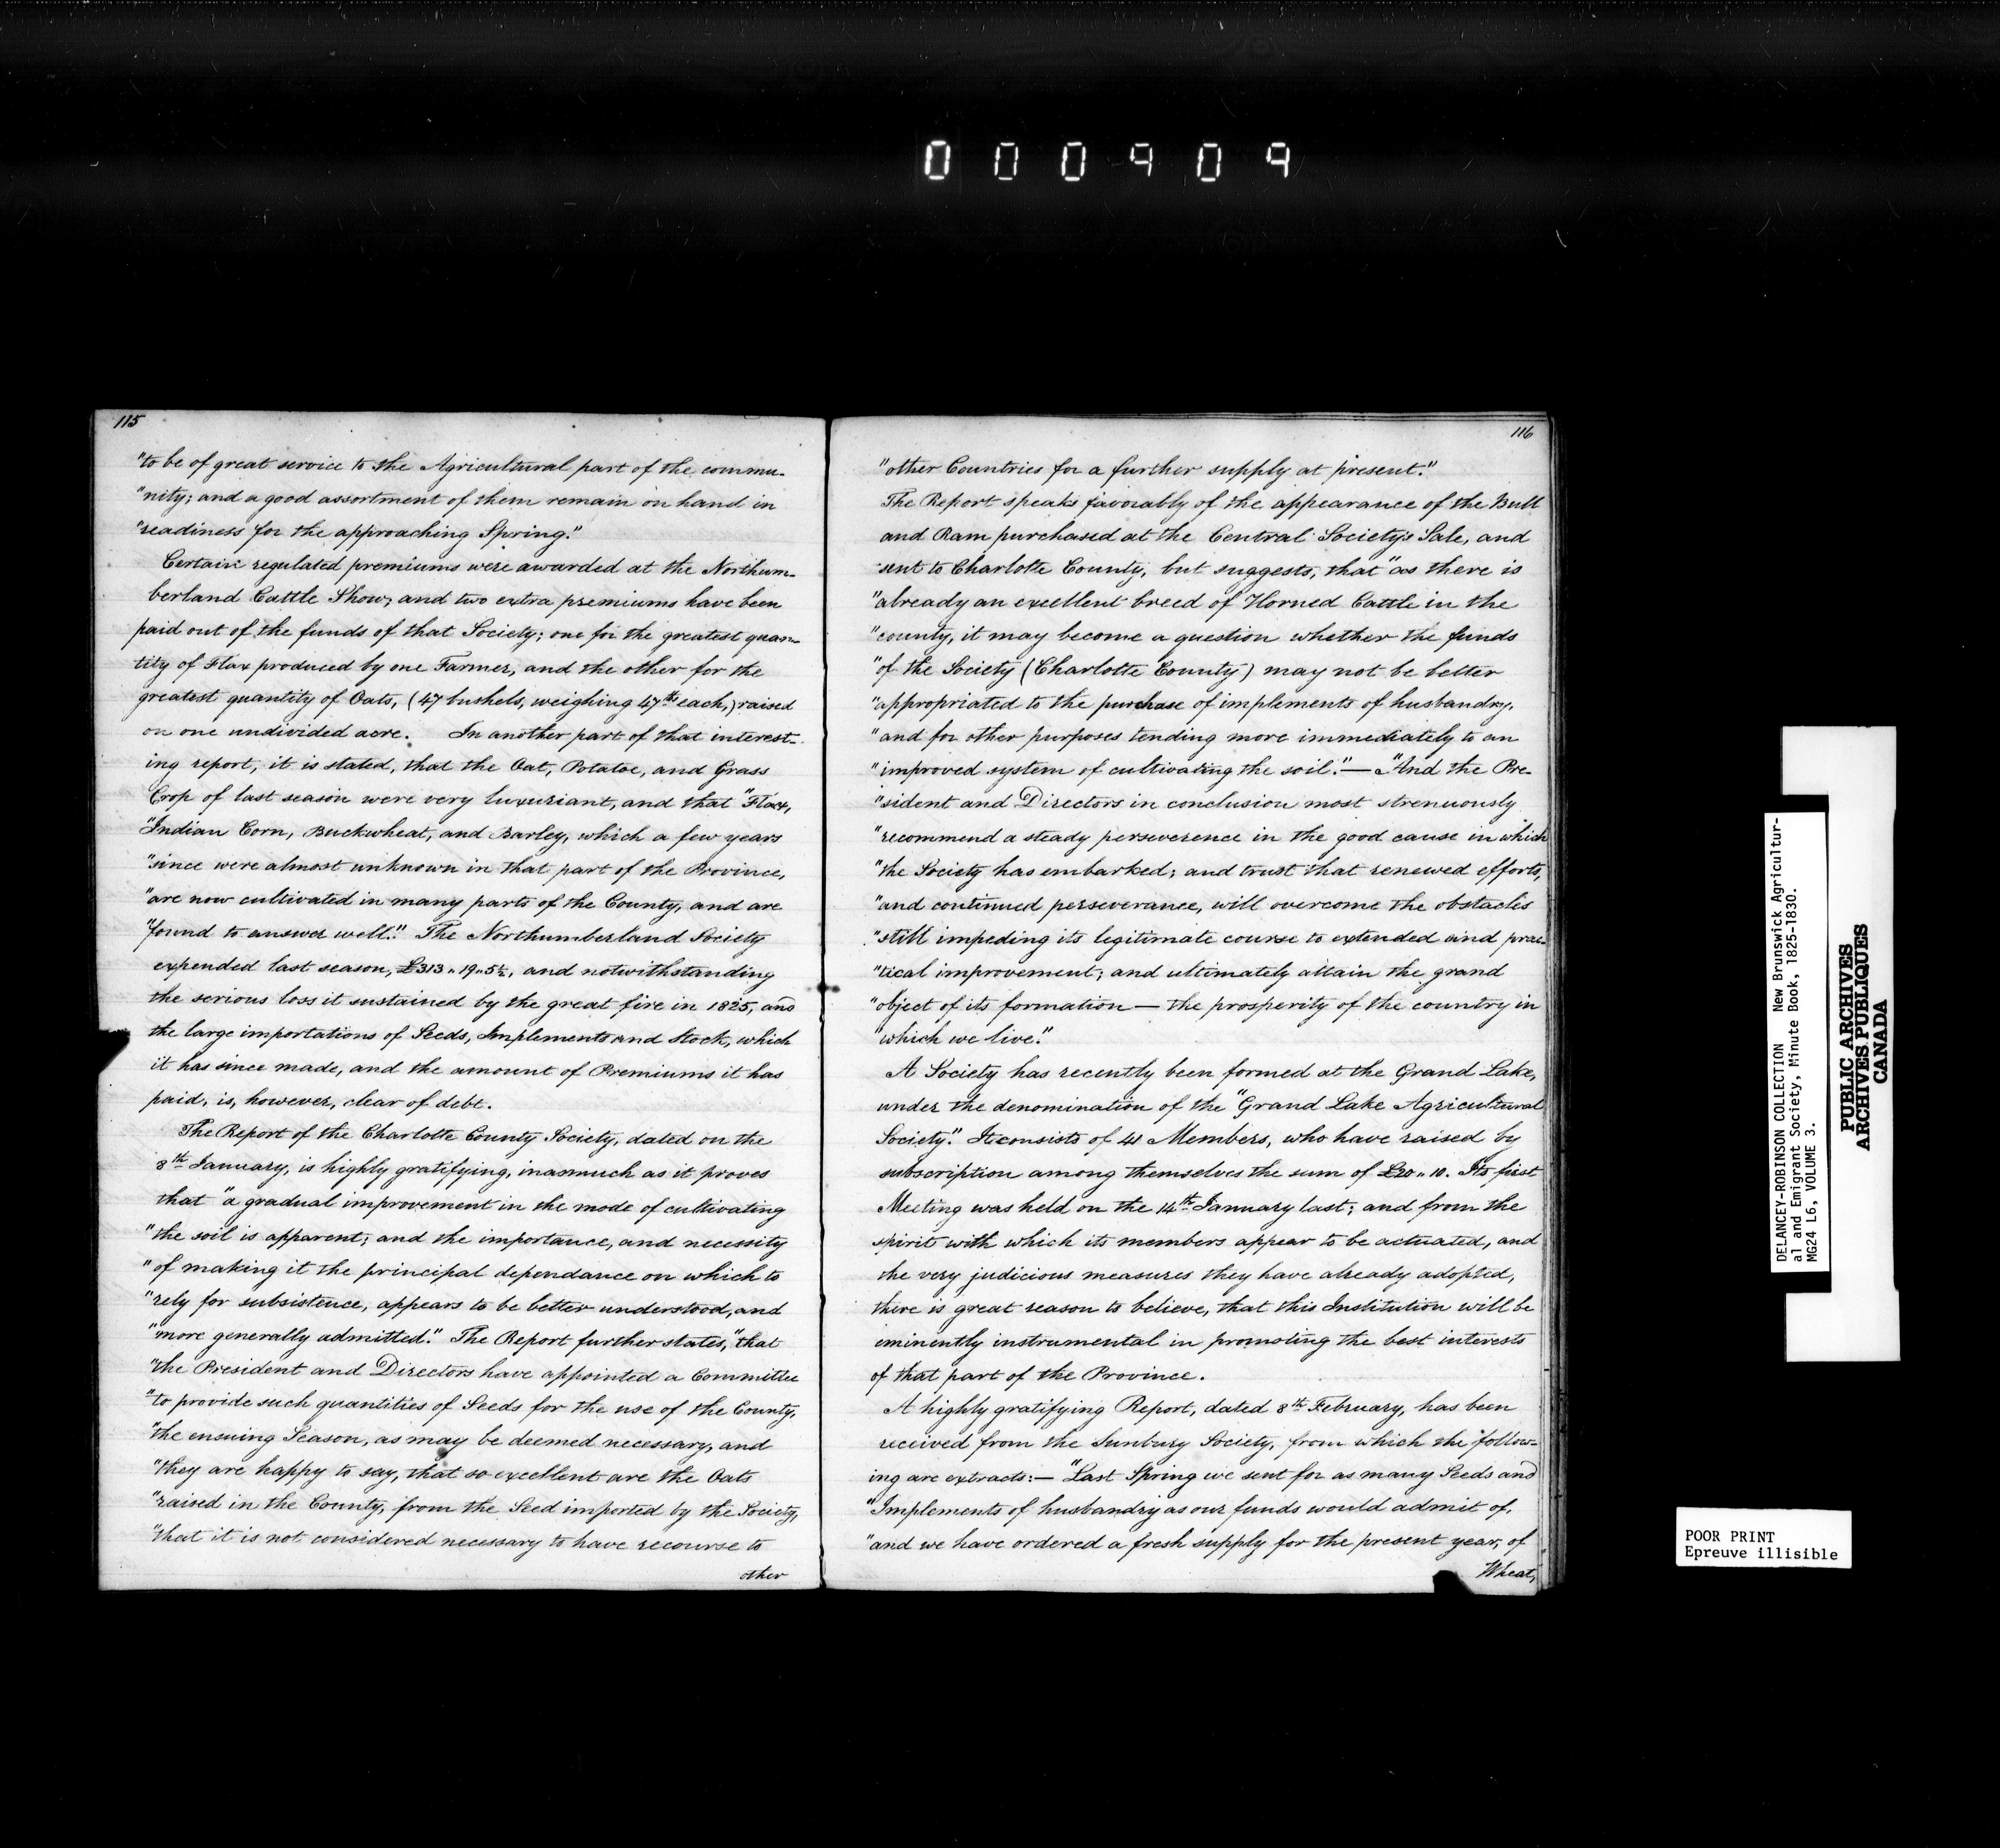 000909
115
"to be of great service to the Agricultural part of the commu-
"nity; and a good assortment of them remain on hand in
"readiness for the approaching Spring."
Certain regulated premiums were awarded at the Northum-
berland Cattle Show, and two extra premiums have been
paid out of the funds of that Society; one for the greatest quan-
tity of Flax produced by one Farmer, and the other for the
greatest quantity of Oats, (47 bushels, weighing 47 lbs each,) raised
on one undivided acre. In another part of that interest-
ing report, it is stated, that the Oat, Potatoe, and Grass
Crop of last season were very luxuriant, and that "Flax,
"Indian Corn, Buckwheat, and Barley, which a few years
"since were almost unknown in that part of the Province,
"are now cultivated in many parts of the County, and are
"found to answer well." The Northumberland Society
expended last season, £313..19..5½, and notwithstanding
the serious loss it sustained by the great fire in 1825, and
the large importations of Seeds, Implements and Stock, which
it has since made, and the amount of Premiums it has
paid, is, however, clear of debt.
The Report of the Charlotte County Society, dated on the
8th January, is highly gratifying, inasmuch as it proves
that "a gradual improvement in the mode of cultivating
"the soil is apparent; and the importance, and necessity
"of making it the principal dependance on which to
"rely for subsistence, appears to be better understood, and
"more generally admitted." The Report further states, "that
"the President and Directors have appointed a Committee
"to provide such quantities of Seeds for the use of the County,
"the ensuing Season, as may be deemed necessary, and
"they are happy to say, that so excellent are the Oats
"raised in the County, from the Seed imported by the Society,
"that it is not considered necessary to have recourse to
other
116
"other Countries for a further supply at present."
The Report speaks favorably of the appearance of the Bull
and Ram purchased at the Central Society's Sale, and
sent to Charlotte County, but suggests, that "as there is
"already an excellent breed of Horned Cattle in the
"county, it may become a question whether the funds
"of the Society (Charlotte County) may not be better
"appropriated to the purchase of implements of husbandry,
"and for other purposes tending more immediately to an
"improved system of cultivating the soil."— "And the Pre-
"sident and Directors in conclusion most strenuously
"recommend a steady perseverence in the good cause in which
"the Society has embarked; and trust that renewed efforts,
"and continued perseverance, will overcome the obstacles
"still impeding its legitimate course to extended and prac-
"tical improvement; and ultimately attain the grand
"object of its formation — the prosperity of the country in
"which we live."
A Society has recently been formed at the Grand Lake,
under the denomination of the "Grand Lake Agricultural
Society." It consists of 41 Members, who have raised by
subscription among themselves the sum of £20..10. Its first
Meeting was held on the 14th January last; and from the
spirit with which its members appear to be actuated, and
the very judicious measures they have already adopted,
there is great reason to believe, that this Institution will be
eminently instrumental in promoting the best interests
of that part of the Province.
A highly gratifying Report, dated 8th February, has been
received from the Sunbury Society, from which the follow-
ing are extracts:— "Last Spring we sent for as many Seeds and
"Implements of husbandry as our funds would admit of,
"and we have ordered a fresh supply for the present year, of
Wheat,
DELANCEY-ROBINSON COLLECTION New Brunswick Agricultur-
al and Emigrant Society, Minute Book, 1825-1830.
MG24 L6, VOLUME 3.
PUBLIC ARCHIVES
ARCHIVES PUBLIQUES
CANADA
POOR PRINT
Epreuve illisible